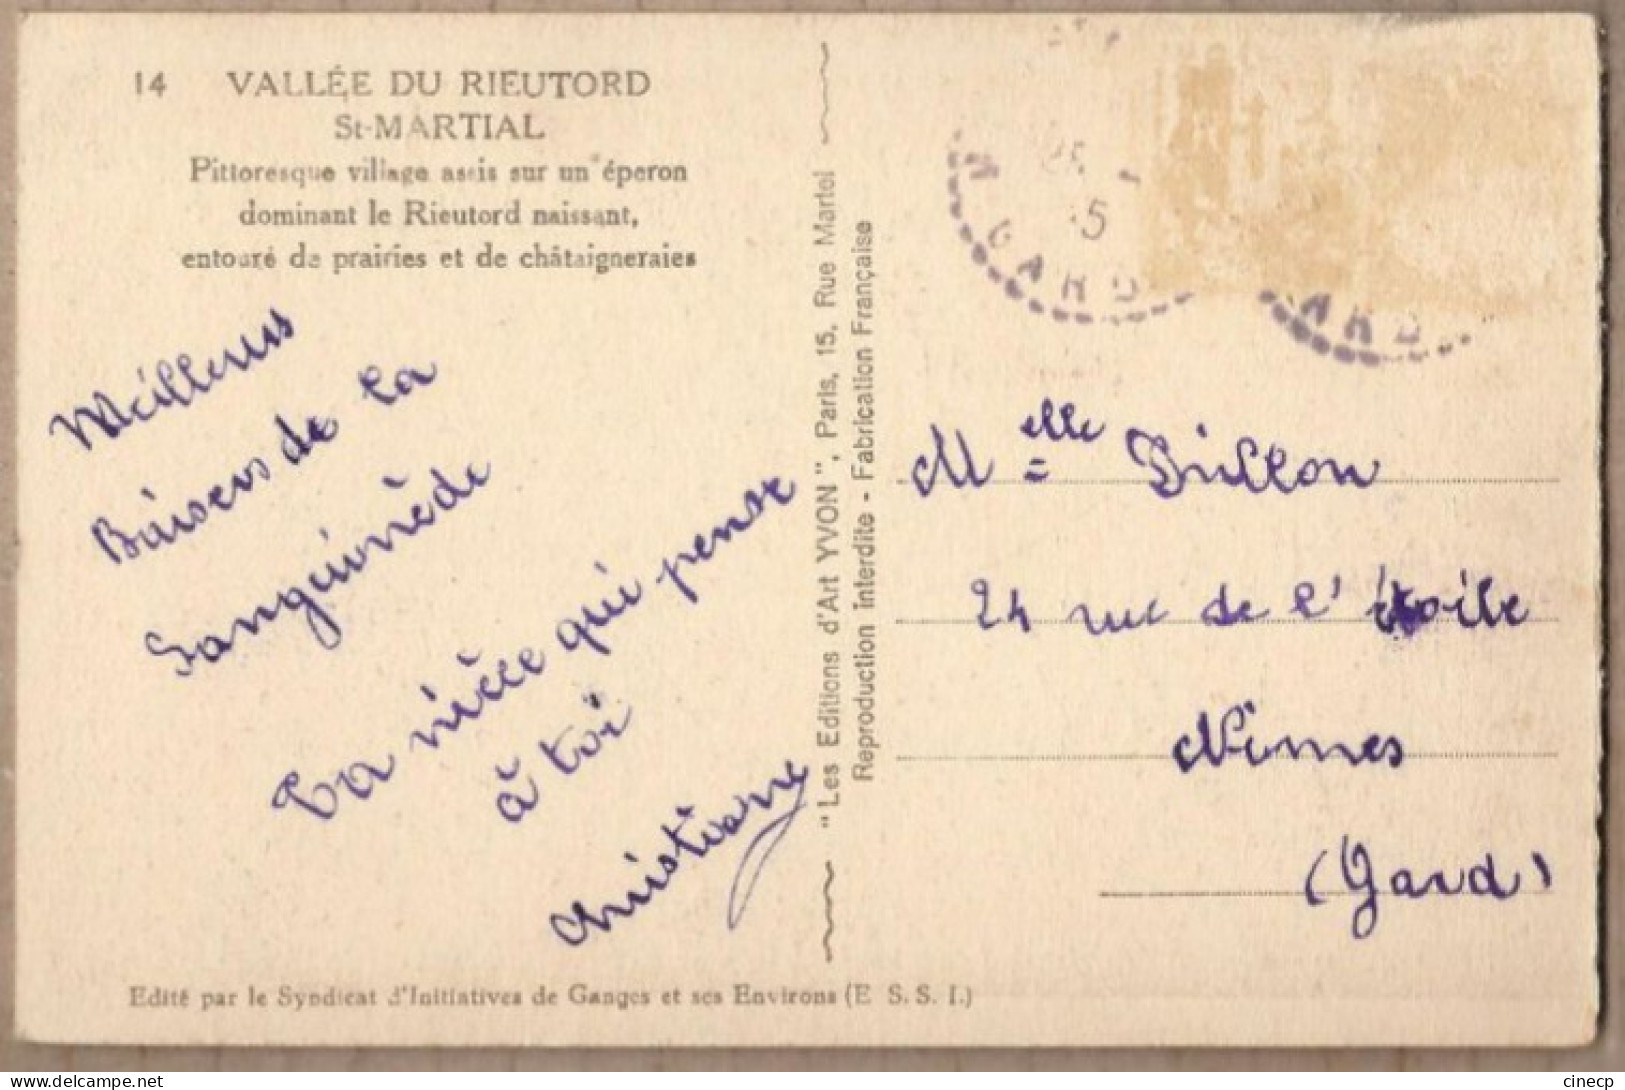 14 VALLÉE DU RIEUTORD
St-MARTIAL
Pittoresque village assis sur un éperon
dominant le Rieutord naissant,
entouré de prairies et de châtaigneraies
Meilleurs
Baisers de la
Sanguinède
Ta nièce qui pense
à toi
Christiane
Edité par le Syndicat d'Initiatives de Ganges et ses Environs (E S. S. I.)
"Les Editions d'Art YVON", Paris, 15, Rue Martel
Reproduction interdite - Fabrication Française
GARD
ARD
Melle
24 rue de l'étoile
Nimes
(Gard)
cinecp